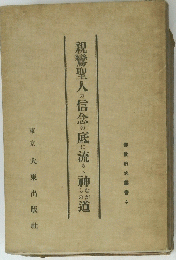 親鸞聖人の信念の底に流るゝ神ながらの道
東京 大東出版社